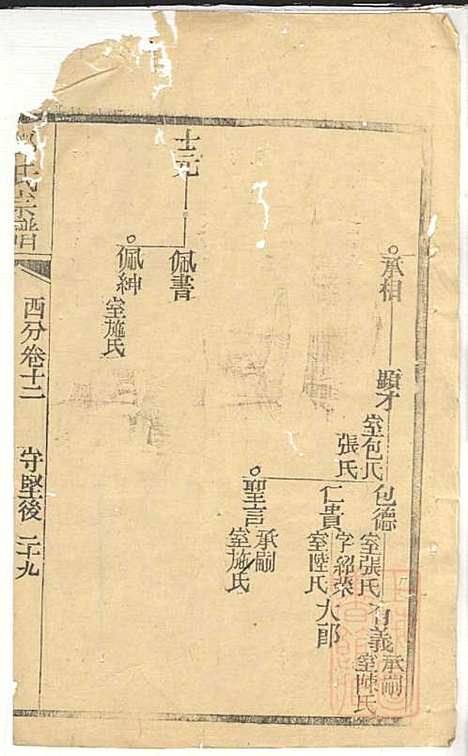 承相
顯才
室包氏
張氏
包德
室張氏
有義
承嗣
室陳氏
仁貴
字紹榮
室陸氏
大郎
聖言
承嗣
室施氏
士元
佩書
佩紳
室施氏
氏宗譜
西分卷十二
守堅後
二十九